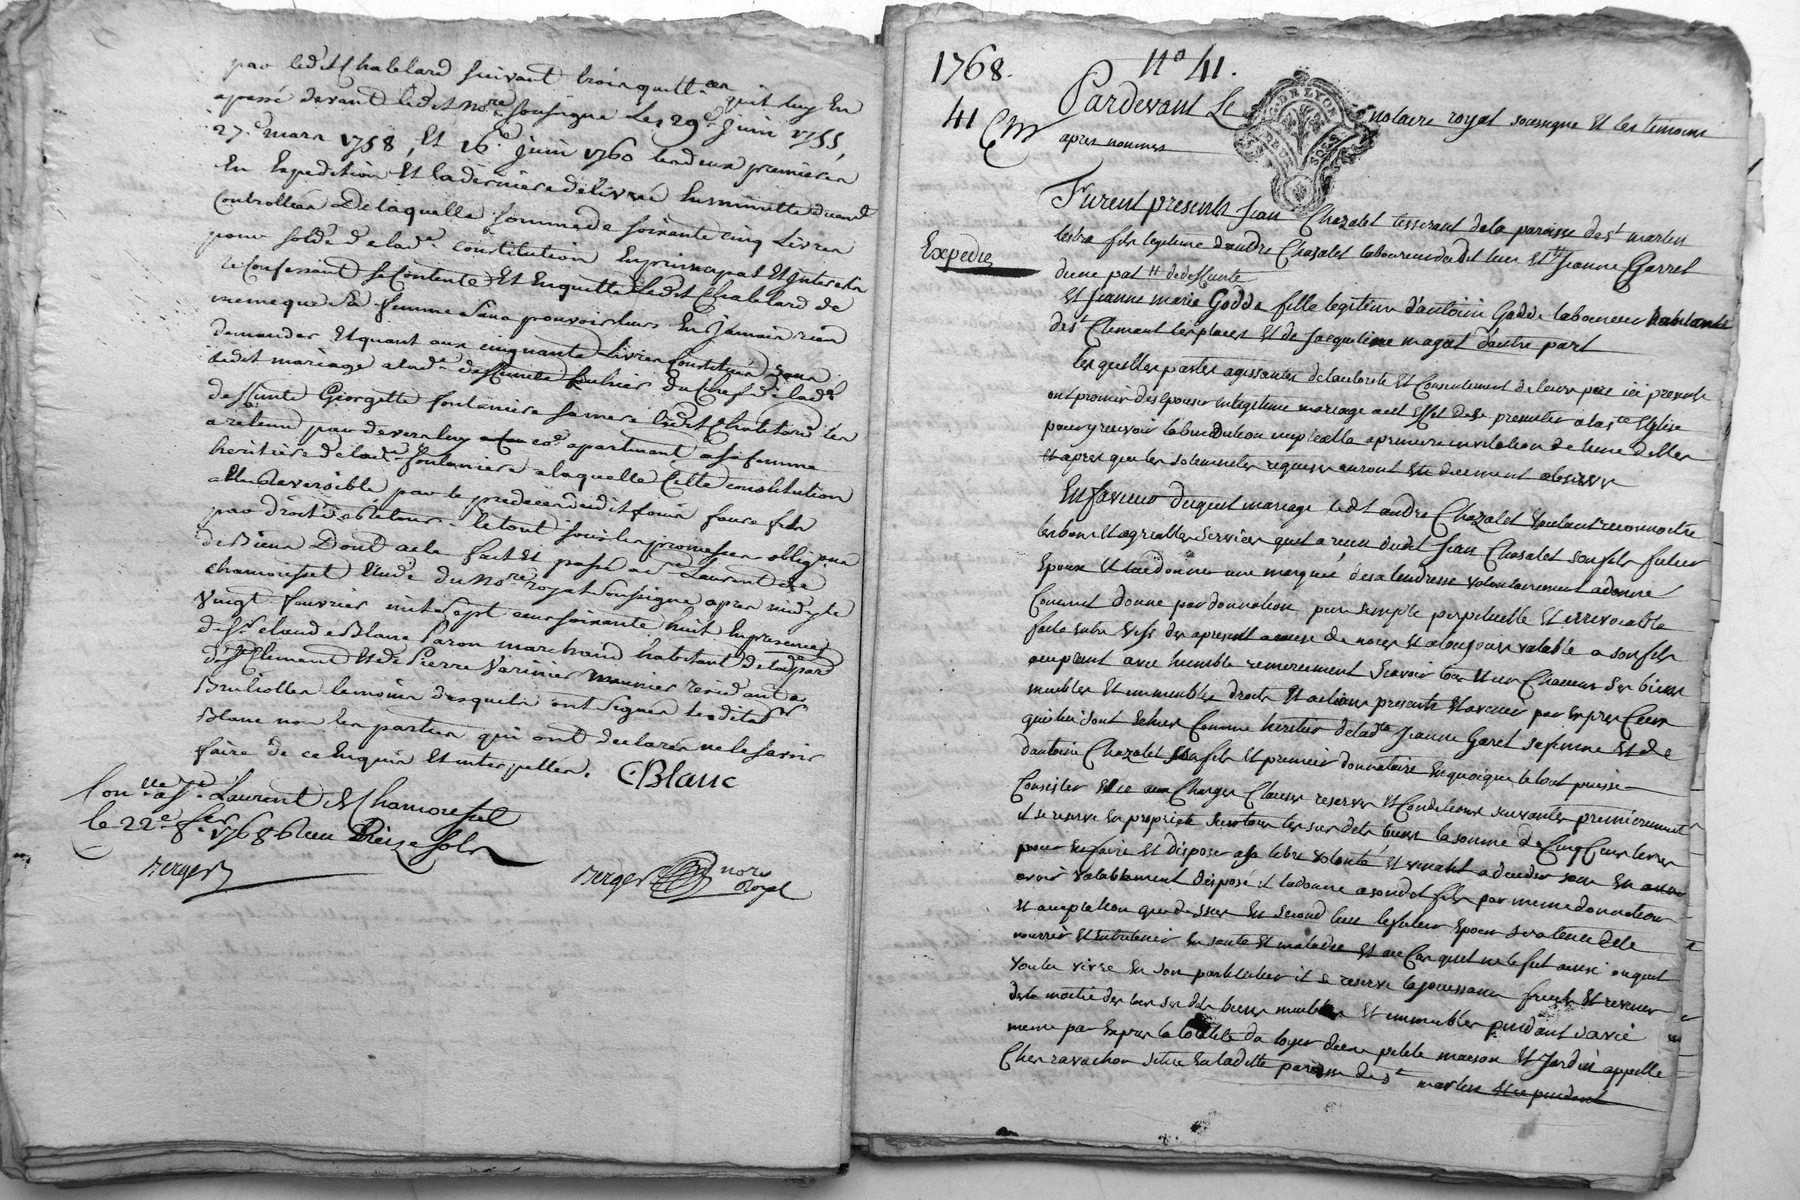 par ledit Chabelard suivant trois quittces qu'il luy en
a passé devant ledit nore soussigné les 29e juin 1755,
27e mars 1758, et 16e juin 1760 les deux premieres
en Expedition et la derniere delivrée en minutte
Controllées De laquelle somme de soixante cinq Livres
pour solde de lade constitution en principal et interets
le Confessant se Contente et en quitte ledit Chabelard de
meme que sa femme sans pouvoir leurs en jamais rien
demander et quant aux cinquante Livres Constituées dans
ledit mariage a lade deffunte du Chef de lade
deffunte Georgette fontaniere sa mere ledit les
a retenu par devers luy co͞e apartenant a sa femme
heritiere de lade fontaniere a laquelle Cette constitution
etoit Reversible par le predeces dudit
par droit de Retour. le tout sous les promesses obligons
de Biens Dont acte fait et passé a St Laurent de
chamousset Etude du Nore royal soussigné apres midy le
vingt fevrier mil sept cent soixante huit En presence
de Sr claude Blanc Garon marchand habitant de la par
de St Clement et de Pierre Varinier meunier residant a
Brullioles temoins desquels ont signés ledit Sr
Blanc non les parties qui ont declarées ne le savoir
faire de ce Enquis et interpellés. C. Blanc
Con.lle a St Laurent de Chamousset
le 22e fer 1768 Reçu Treize sols
Berger
Berger nore Royal
1768. No 41.
41
Pardevant Le notaire royal soussigné et les temoins
apres nommés
G. DE LYON
Furent presents Jean Chazalet tisserant de la paroisse de St martin
lestra fils legitime d'andré Chazalet laboureur dudit lieu et de Jeanne Garret
Expediée
d'une part // deffunte
Et Jeanne marie Godde fille legitime d'antoine Godde laboureur habitants
de St Clement les places et de Jacqueline magat d'autre part
lesquelles parties agissantes de l'autorité et Consentement de leurs pere ici presents
ont promis de s'epouser en legitime mariage a cet effet de se presenter a la ste Eglise
pour y recevoir la benediction nuptialle a premiere invitation de l'une d'elles
et apres que les solemnités requises auront été duement observées
En faveur duquel mariage ledt andré Chazalet voulant reconnoitre
les bons et agreables services qu'il a reçu dudit Jean Chazalet son fils futur
Epoux et lui donner une marque de sa tendresse volontairement a donné
Comme il donne par donnation pure simple perpetuelle et irrevocable
faite entre vifs des apresent a cause de noces et a toujours valable a son fils
acceptant avec humble remerciement sçavoir tous et un Chacuns ses biens
meubles et immeubles droits et actions presents et avenir par expres Ceux
qui lui sont echus Comme heritier de lade Jeanne Garet sa femme et de
d'antoine Chazalet son fils et premier donnataire en quoique le tout puisse
Consister et ce aux Charges Clauses reserves et Conditions suivantes premierement
il se reserve en proprieté sur tous les susdits biens la somme de Cinq Cens livres
pour en faire et disposer a sa libre volonté et venant a deceder sans en avoir
valablement disposé il la donne a sondit fils par meme donnation
et acceptation que dessus En second lieu le futur epoux sera tenu de le
nourrir et entretenir en santé et maladie et au Cas qu'il ne le fut ainsi ou qu'il
voulu vivre en son particulier il se reserve la jouissance fruits et revenus
de la moitié de tous ses dits biens meubles et immeubles pendant sa vie
meme par expres la totalité du loyer d'une petite maison et Jardin appellé
Chez ravachon situé en ladite paroisse de St martin et ce pendant